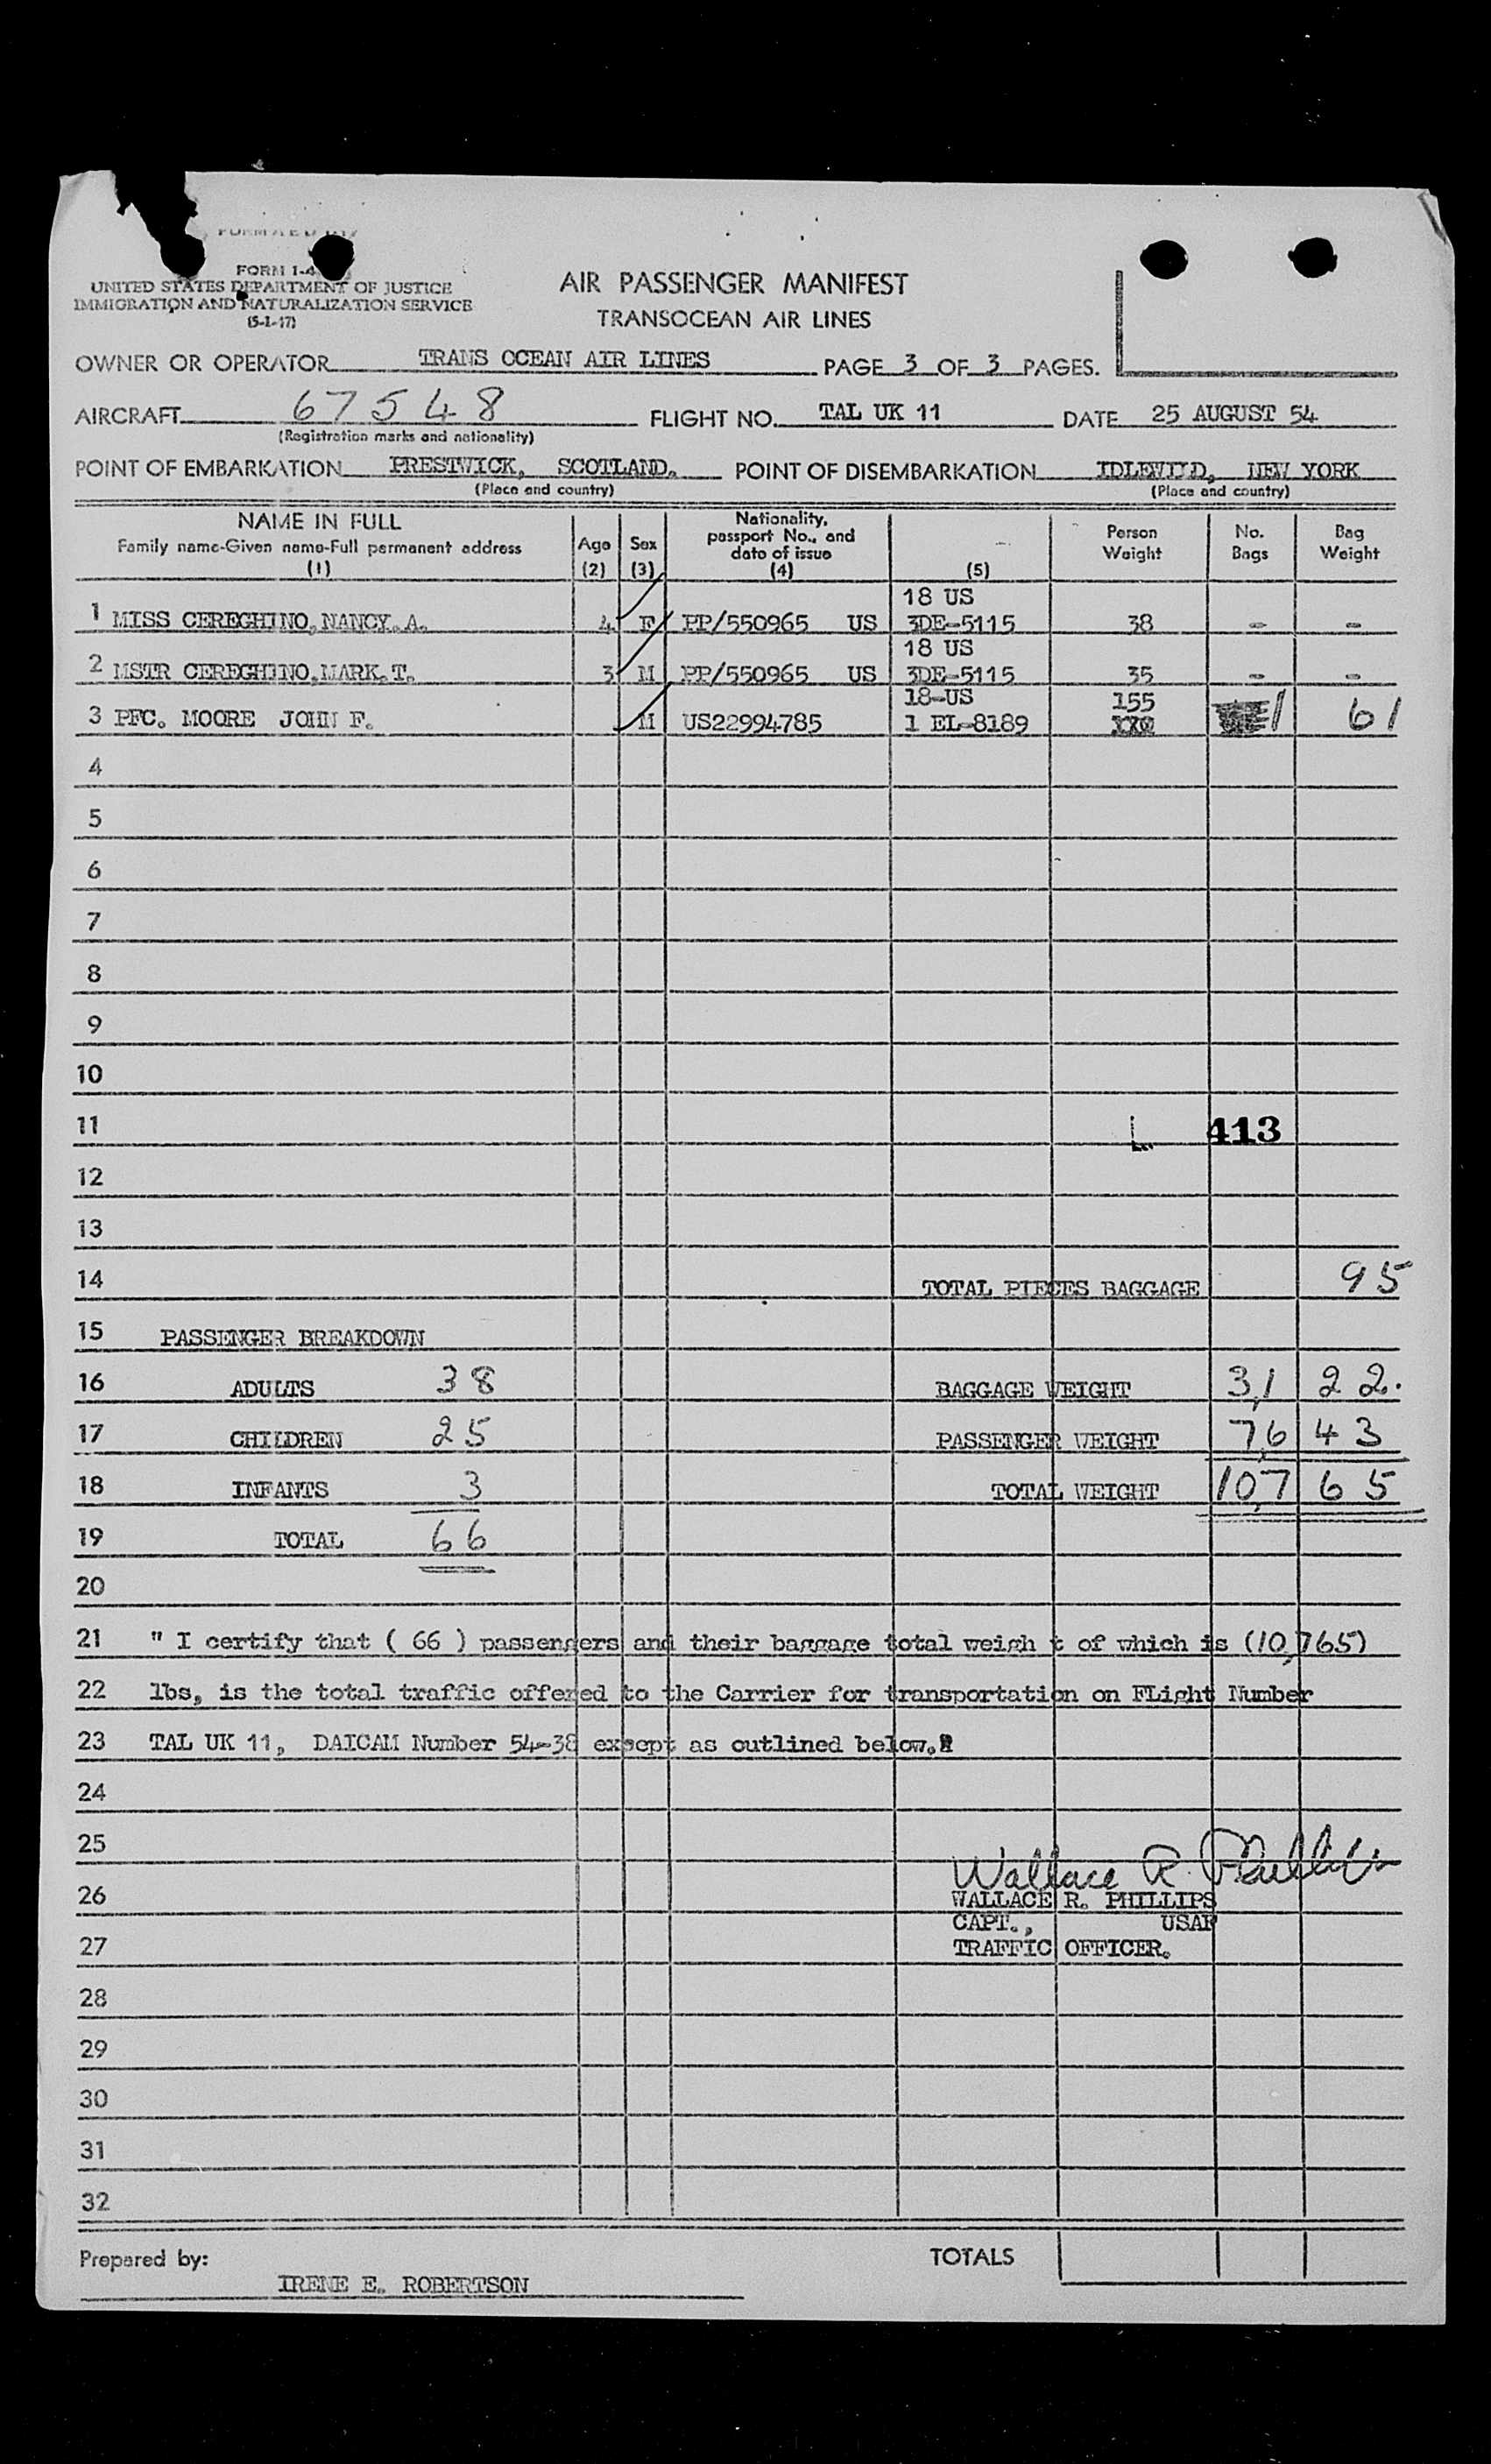 FORM I-4
UNITED STATES DEPARTMENT OF JUSTICE
IMMIGRATION AND NATURALIZATION SERVICE
(5-1-47)
AIR PASSENGER MANIFEST
TRANSOCEAN AIR LINES
OWNER OR OPERATOR TRANS OCEAN AIR LINES PAGE 3 OF 3 PAGES.
AIRCRAFT 67548 FLIGHT NO. TAL UK 11 DATE 25 AUGUST 54
(Registration marks and nationality)
POINT OF EMBARKATION PRESTWICK, SCOTLAND. POINT OF DISEMBARKATION IDLEWILD, NEW YORK
(Place and country) (Place and country)
NAME IN FULL
Family name-Given name-Full permanent address
(1)
Age
(2)
Sex
(3)
Nationality,
passport No., and
date of issue
(4)
(5)
Person
Weight
No.
Bags
Bag
Weight
18 US
1 MISS CEREGHINO, NANCY. A. 4 F PP/550965 US 3DE-5115 38 - -
18 US
2 MSTR CEREGHINO, MARK. T. 3 M PP/550965 US 3DE-5115 35 - -
18-US 155
3 PFC. MOORE JOHN F. M US22994785 1 EL-8189 1 61
4
5
6
7
8
9
10
11 413
12
13
14 TOTAL PIECES BAGGAGE 95
15 PASSENGER BREAKDOWN
16 ADULTS 38 BAGGAGE WEIGHT 3,122.
17 CHILDREN 25 PASSENGER WEIGHT 7,643
18 INFANTS 3 TOTAL WEIGHT 10,765
19 TOTAL 66
20
21 " I certify that ( 66 ) passengers and their baggage total weigh t of which is (10,765)
22 lbs, is the total traffic offered to the Carrier for transportation on FLight Number
23 TAL UK 11, DAICAM Number 54-38 except as outlined below."
24
25
Wallace R. Phillips
26 WALLACE R. PHILLIPS
CAPT., USAF
27 TRAFFIC OFFICER.
28
29
30
31
32
Prepared by: TOTALS
IRENE E. ROBERTSON